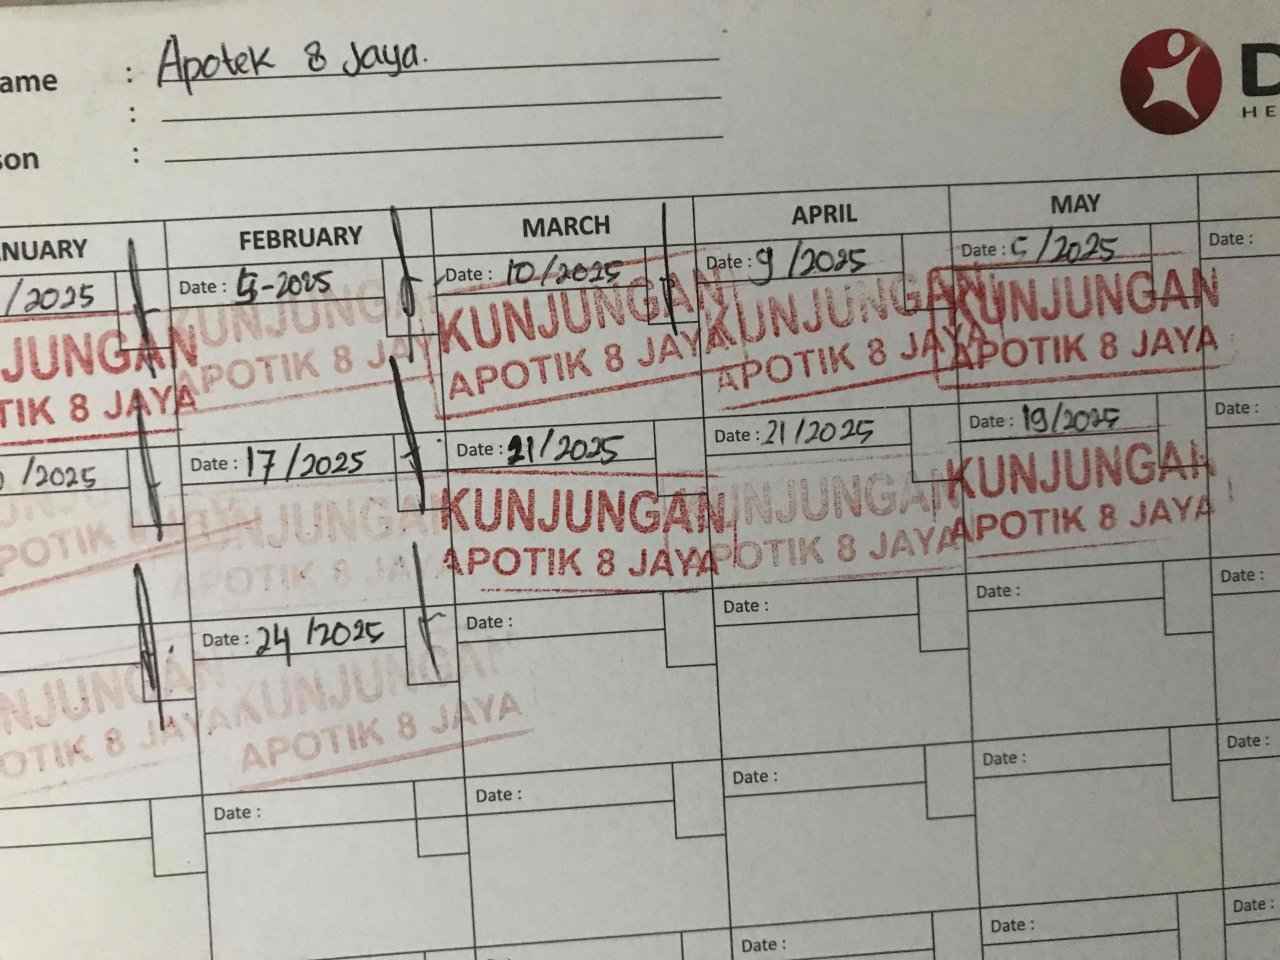 ame : Apotek 8 Jaya.
:
son :
D
HE
NUARY FEBRUARY MARCH APRIL MAY
/2025 Date : 5-2025 Date : 10/2025 Date : 9/2025 Date : 5/2025 Date :
JUNGAN KUNJUNGAN KUNJUNGAN KUNJUNGAN KUNJUNGAN
TIK 8 JAYA APOTIK 8 JAYA APOTIK 8 JAYA APOTIK 8 JAYA APOTIK 8 JAYA
/2025 Date : 17/2025 Date : 21/2025 Date : 21/2025 Date : 19/2025 Date :
UNJUNGAN KUNJUNGAN UNJUNGAN KUNJUNGAN
POTIK 8 JAYA APOTIK 8 JAYA APOTIK 8 JAYA POTIK 8 JAYA APOTIK 8 JAYA
Date : 24/2025 Date : Date : Date : Date :
NJUNGAN KUNJUNGAN
OTIK 8 JAYA APOTIK 8 JAYA
Date : Date : Date : Date : Date :
Date : Date : Date :